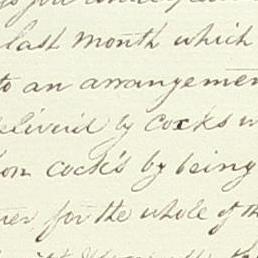 last month which
to an arrangemen
deliver'd by Cocks w
from cock's by being
for the whole of th